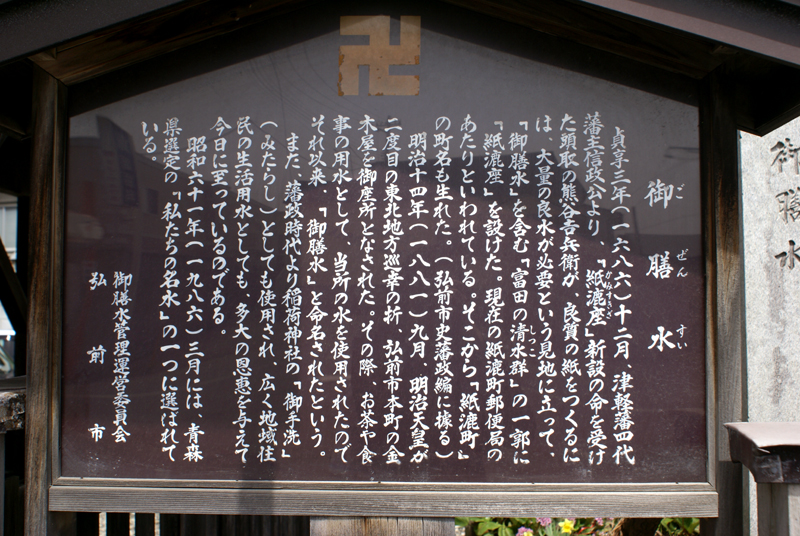 御膳水
ごぜんすい
貞享三年(一六八六)十二月、津軽藩四代
藩主信政公より、『紙漉座』新設の命を受け
かみすきざ
た頭取の熊谷吉兵衛が、良質の紙をつくるに
は、大量の良水が必要という見地に立って、
『御膳水』を含む『富田の清水群』の一郭に
しつこ
『紙漉座』を設けた。現在の紙漉町郵便局の
あたりといわれている。そこから『紙漉町』
の町名も生れた。(弘前市史藩政編に據る)
明治十四年(一八八一)九月、明治天皇が
二度目の東北地方巡幸の折、弘前市本町の金
木屋を御座所となされた。その際、お茶や食
事の用水として、当所の水を使用されたので
それ以来、『御膳水』と命名されたという。
また、藩政時代より稲荷神社の『御手洗』
(みたらし)としても使用され、広く地域住
民の生活用水としても、多大の恩恵を与えて
今日に至っているのである。
昭和六十一年(一九八六)三月には、青森
県選定の『私たちの名水』の一つに選ばれて
いる。
御膳水管理運営委員会
弘前市
御膳水